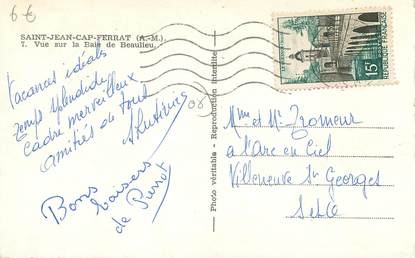 6 €
SAINT-JEAN-CAP-FERRAT (A.-M.)
7. Vue sur la Baie de Beaulieu.
Vacances idéales
temps splendide
Cadre merveilleux
amitiés de tout
Bons
baisers
de Pierrot
06
Photo véritable - Reproduction interdite
15F
REPUBLIQUE FRANÇAISE
Mme et Mr Tromeur
a l'arc en Ciel
Villeneuve St Georges
S et O